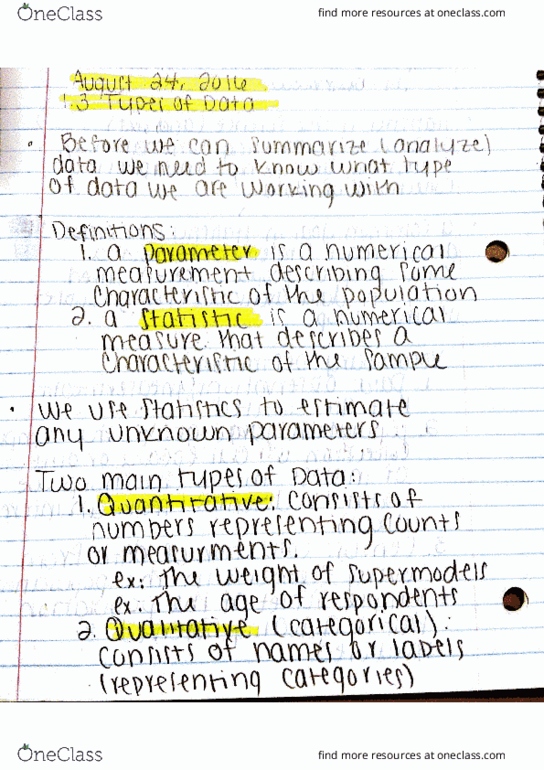 OneClass
find more resources at oneclass.com
August 24, 2016
1.3 Types of Data
Before we can summarize (analyze)
data we need to know what type
of data we are working with
Definitions:
1. a parameter is a numerical
measurement describing some
characteristic of the population
2. a statistic is a numerical
measure that describes a
characteristic of the sample
• We use statistics to estimate
any unknown parameters
Two main types of Data:
1. Quantitative: consists of
numbers representing counts
or measurments.
ex: The weight of supermodels
ex: The age of respondents
2. Qualitative (categorical):
consists of names or labels
(representing categories)
OneClass
find more resources at oneclass.com